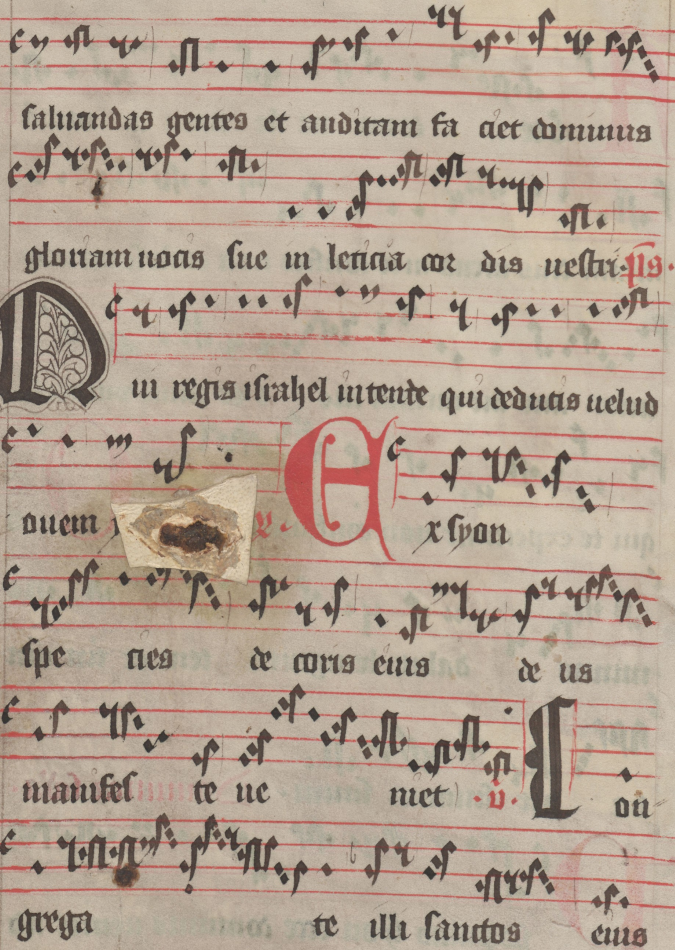 saluandas gentes et auditam fa ciet dominus
gloriam uocis sue in leticia cor dis uestri. ps.
Qui regis israhel intende qui deducis uelud
ouem v. Ex syon
spe cies de coris eius de us
manifes te ue niet v. Con
grega te illi sanctos eius